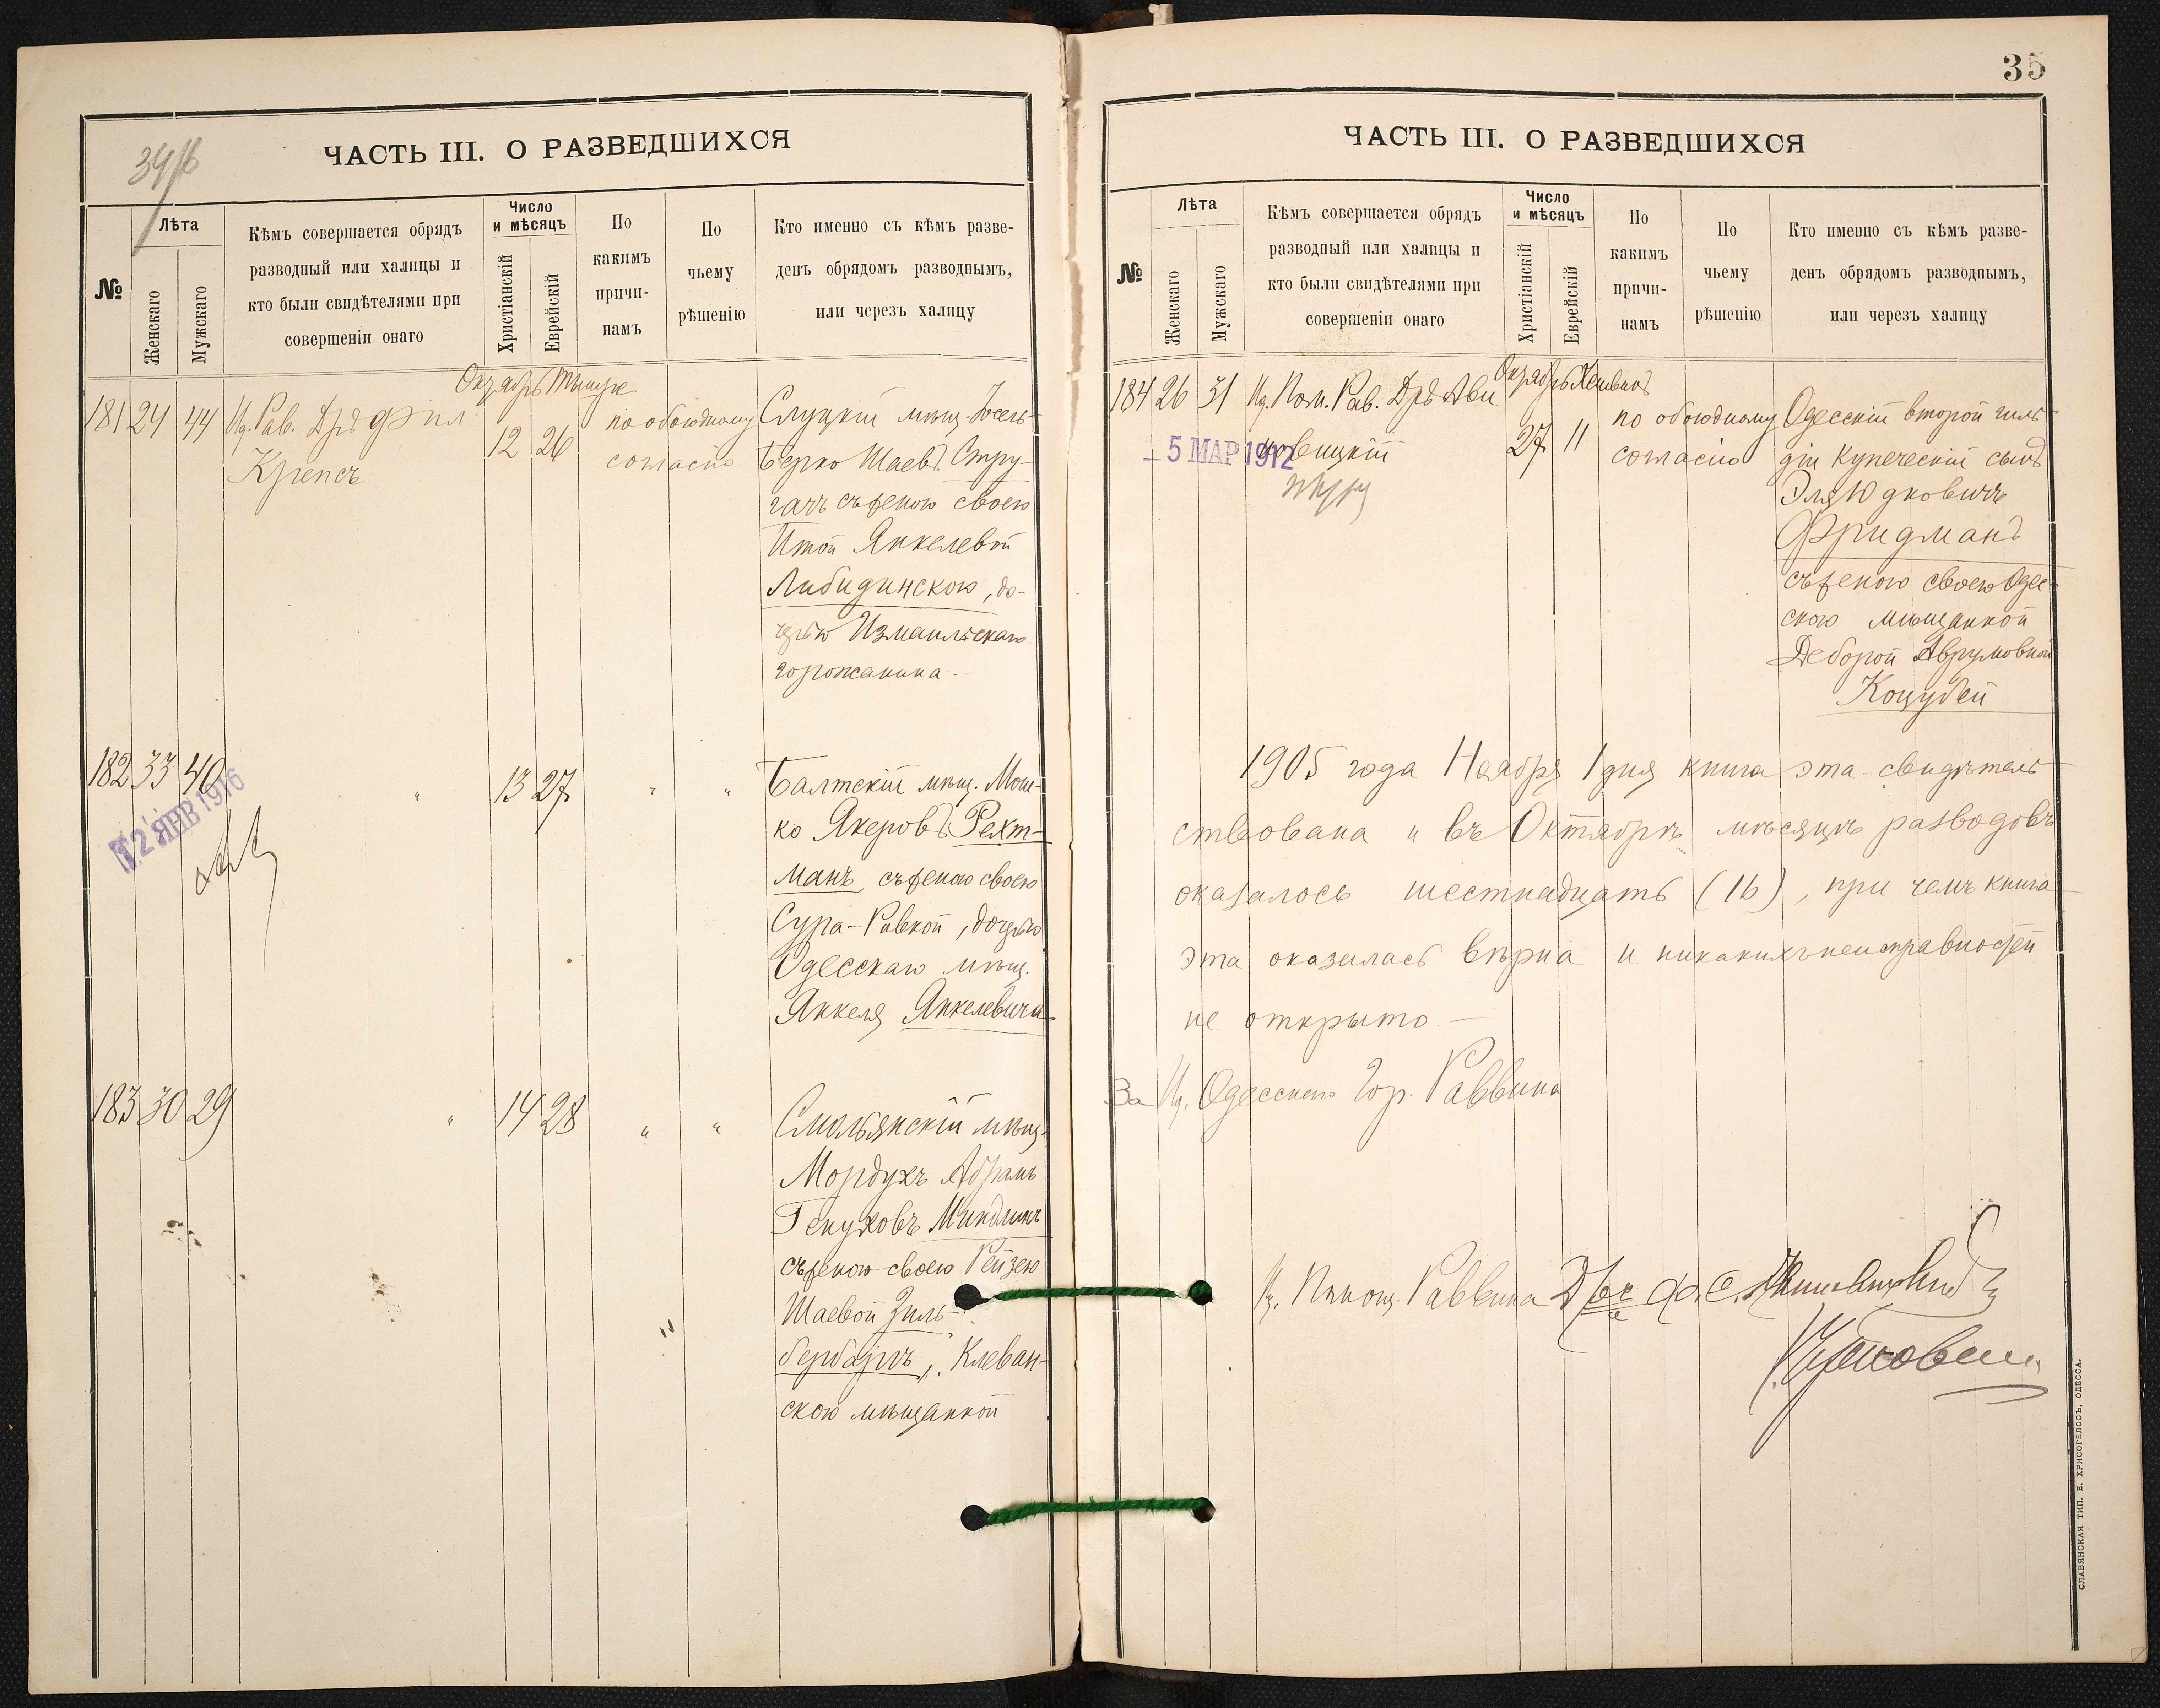 ЧАСТЬ III. О РАЗВЕДШИХСЯ
№
Лѣта
Женскаго
Мужскаго
Кѣмъ совершается обрядъ
разводный или халицы и
кто были свидѣтелями при
совершеніи онаго
Число
и мѣсяцъ
Христіанскій
Еврейскій
По
какимъ
причи-
намъ
По
чьему
рѣшенію
Кто именно съ кѣмъ разве-
денъ обрядомъ разводнымъ,
или черезъ халицу
Октябрь Тишре
181 24 44 И. Рав. Дръ Фил
Крепсъ
12 26
по обоюдному
согласію
Слуцкій мѣщ. Іосель
Берко Шаевъ Стру-
гачъ съ женою своею
Итой Янкелевой
Либидинскою, до-
черью Измаильскаго
горожанина.
182 33 40 " 13 27 " "
12 ЯНВ 1916
Балтскій мѣщ. Мош-
ко Якеровъ Рехт-
манъ съ женою своею
Сура-Ривкой, дочерью
Одесскаго мѣщ.
Янкеля Янкелевича
183 30 29 " 14 28 " "
Смольянскій мѣщ.
Мордухъ Абрамъ
Генуховъ Миндлинъ
съ женою своею Рейзею
Шаевой Зиль-
бербергъ, Клеван-
скою мѣщанкой
35
ЧАСТЬ III. О РАЗВЕДШИХСЯ
№
Лѣта
Женскаго
Мужскаго
Кѣмъ совершается обрядъ
разводный или халицы и
кто были свидѣтелями при
совершеніи онаго
Число
и мѣсяцъ
Христіанскій
Еврейскій
По
какимъ
причи-
намъ
По
чьему
рѣшенію
Кто именно съ кѣмъ разве-
денъ обрядомъ разводнымъ,
или черезъ халицу
Октябрь Хешвонъ
184 26 31 И. Пом. Рав. Дръ Ави
новицкій
5 МАР 1912
27 11
по обоюдному
согласію
Одесскій второй гиль-
діи купеческій сынъ
Эля Юдковичъ
Фридманъ
съ женою своею Одес-
скою мѣщанкой
Деборой Аврумовной
Коцубей
1905 года Ноября 1 дня книга эта свидѣтель-
ствована и въ Октябрѣ мѣсяцѣ разводовъ
оказалось шестнадцать (16), при чемъ книга
эта оказалась вѣрна и никакихъ неисправностей
не открыто.—
За И. Одесскаго Гор. Раввина
И. Помощ. Раввина Дръ
СЛАВЯНСКАЯ ТИП. Е. ХРИСОГЕЛОСЪ, ОДЕССА.